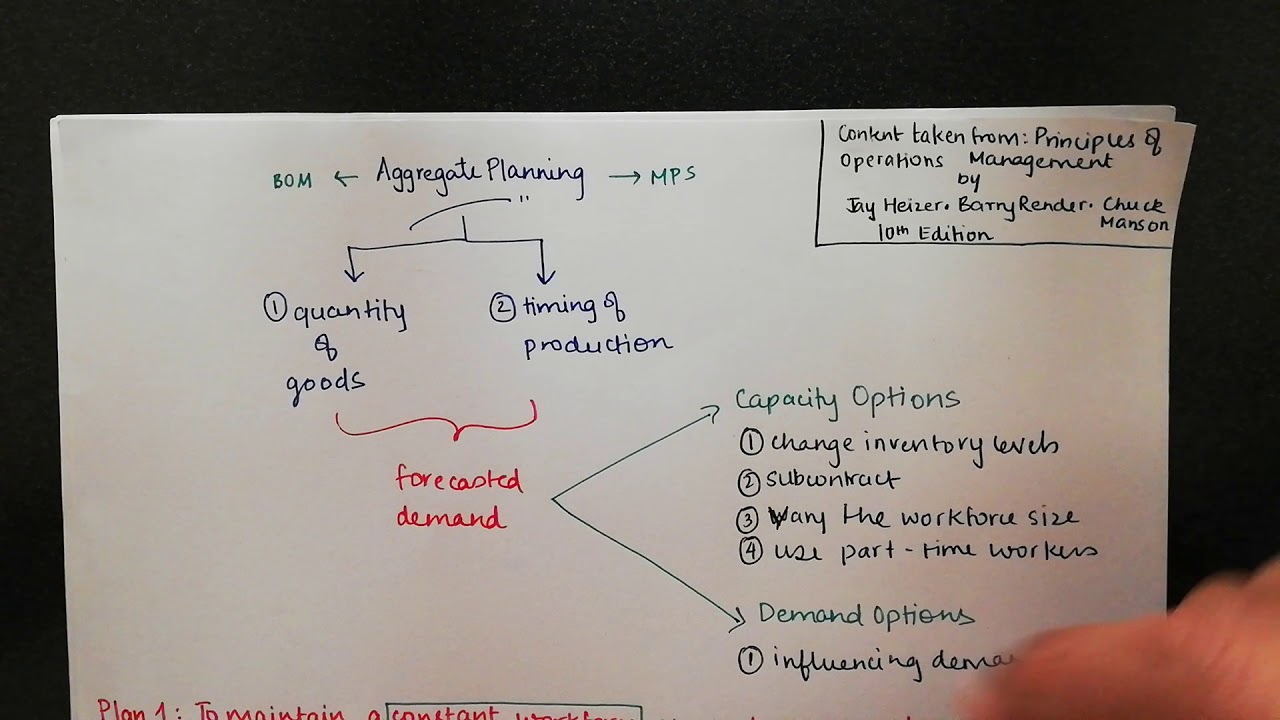 Content taken from: Principles of
Operations Management
by
Jay Heizer. Barry Render. Chuck
Manson
10th Edition
BOM ← Aggregate Planning → MPS
"
① quantity
of
goods
② timing of
production
forecasted
demand
Capacity Options
① change inventory levels
② subcontract
③ Vary the workforce size
④ use part-time workers
Demand Options
① influencing
Plan 1: To maintain a constant workforce